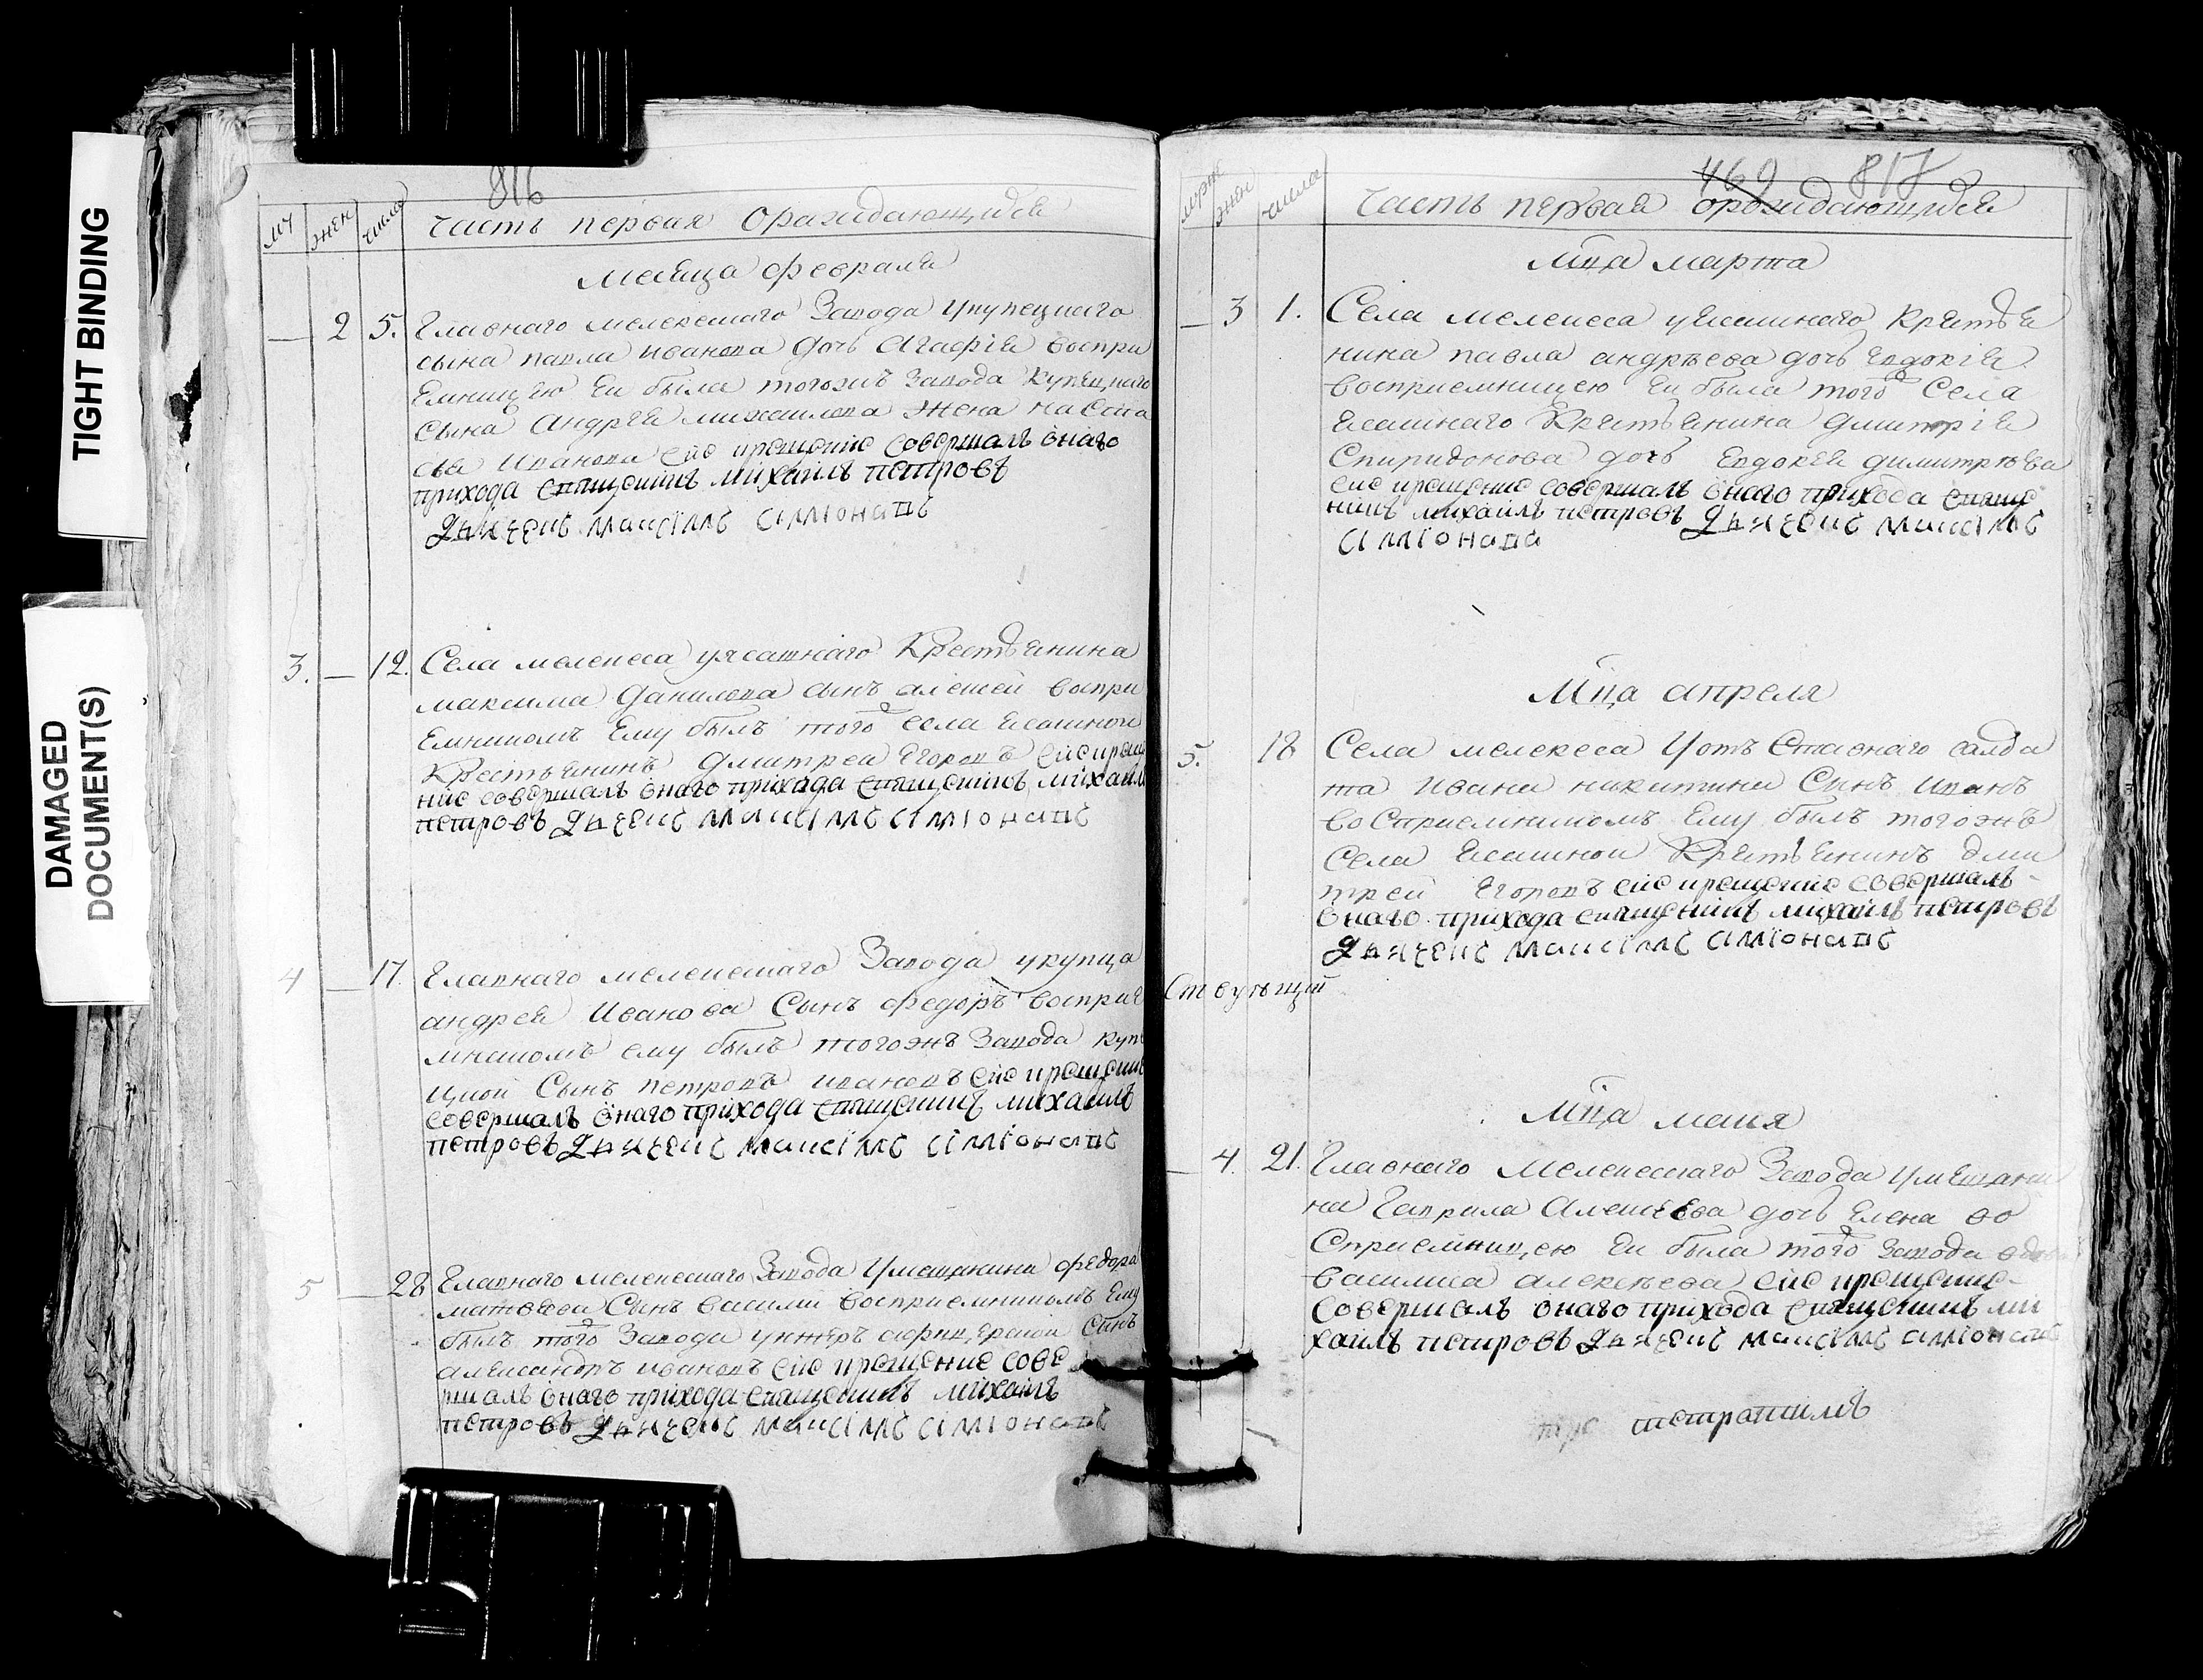 TIGHT BINDING
DAMAGED
DOCUMENT(S)
816
му жен числа
часть первая Ораждающихся
месяца февраля
2 5. Главнаго мелекескаго Завода Укупецкаго
сына павла иванова дочь Агафiя воспри
емницею Ей была тогожъ завода Купецкаго
сына Андрея михаилова жена настa
сья Иванова сие крещение совершалъ онаго
прихода священникъ михаилъ петровъ
3. 12. Села мелекеса уясашнаго Крестьянина
максима данилова сынъ алексей воспри
емникомъ Ему былъ того села ясашной
Крестьянинъ дмитрей Егоровъ сие креще
ние совершалъ онаго прихода священникъ михаил
петровъ
4 17. Главнаго мелекескаго Завода укупца
андрея Иванова Сынъ федоръ восприе
мникомъ ему былъ тогожъ Завода куп
цкой Сынъ петровъ ивановъ сие крещение
совершалъ онаго прихода священникъ михаилъ
петровъ
5 28 Главнаго мелекескаго Завода Умещанина федора
матвеева Сынъ василий восприемникомъ Ему
былъ того Завода унтеръ афицерской Сынъ
александръ ивановъ сие крещение сове
ршалъ онаго прихода священникъ михаилъ
петровъ
469 817
муже жен числа
часть первая ораждающихся
мца марта
3 1. Села мелекеса уясашнаго Крестья
нина павла андрѣева дочь Евдокiя
восприемницею Ей была того Села
ясашнаго Крестьянина дмитрiя
Спиридонова дочь Евдокея димитрѣева
сие крещение совершалъ онаго прихода священ
никъ михаилъ петровъ
мца апреля
5. 18 Села мелекеса Уотъ Ставнаго салда
та Ивана никитина Сынъ Иванъ
воСприемникомъ Ему былъ тогожъ
Села ясашной Крестьянинъ дми
трей Егоровъ сие крещение совершалъ
онаго прихода священникъ михаилъ петровъ
Ствующий
мца маия
4. 21. Главнаго мелекескаго Завода Умещани
на Гаврила Алексеева дочь Елена во
Сприемницею Ей была того завода вдова
василиса алексѣева сие крещение
совершалъ онаго прихода священникъ ми
хаилъ петровъ